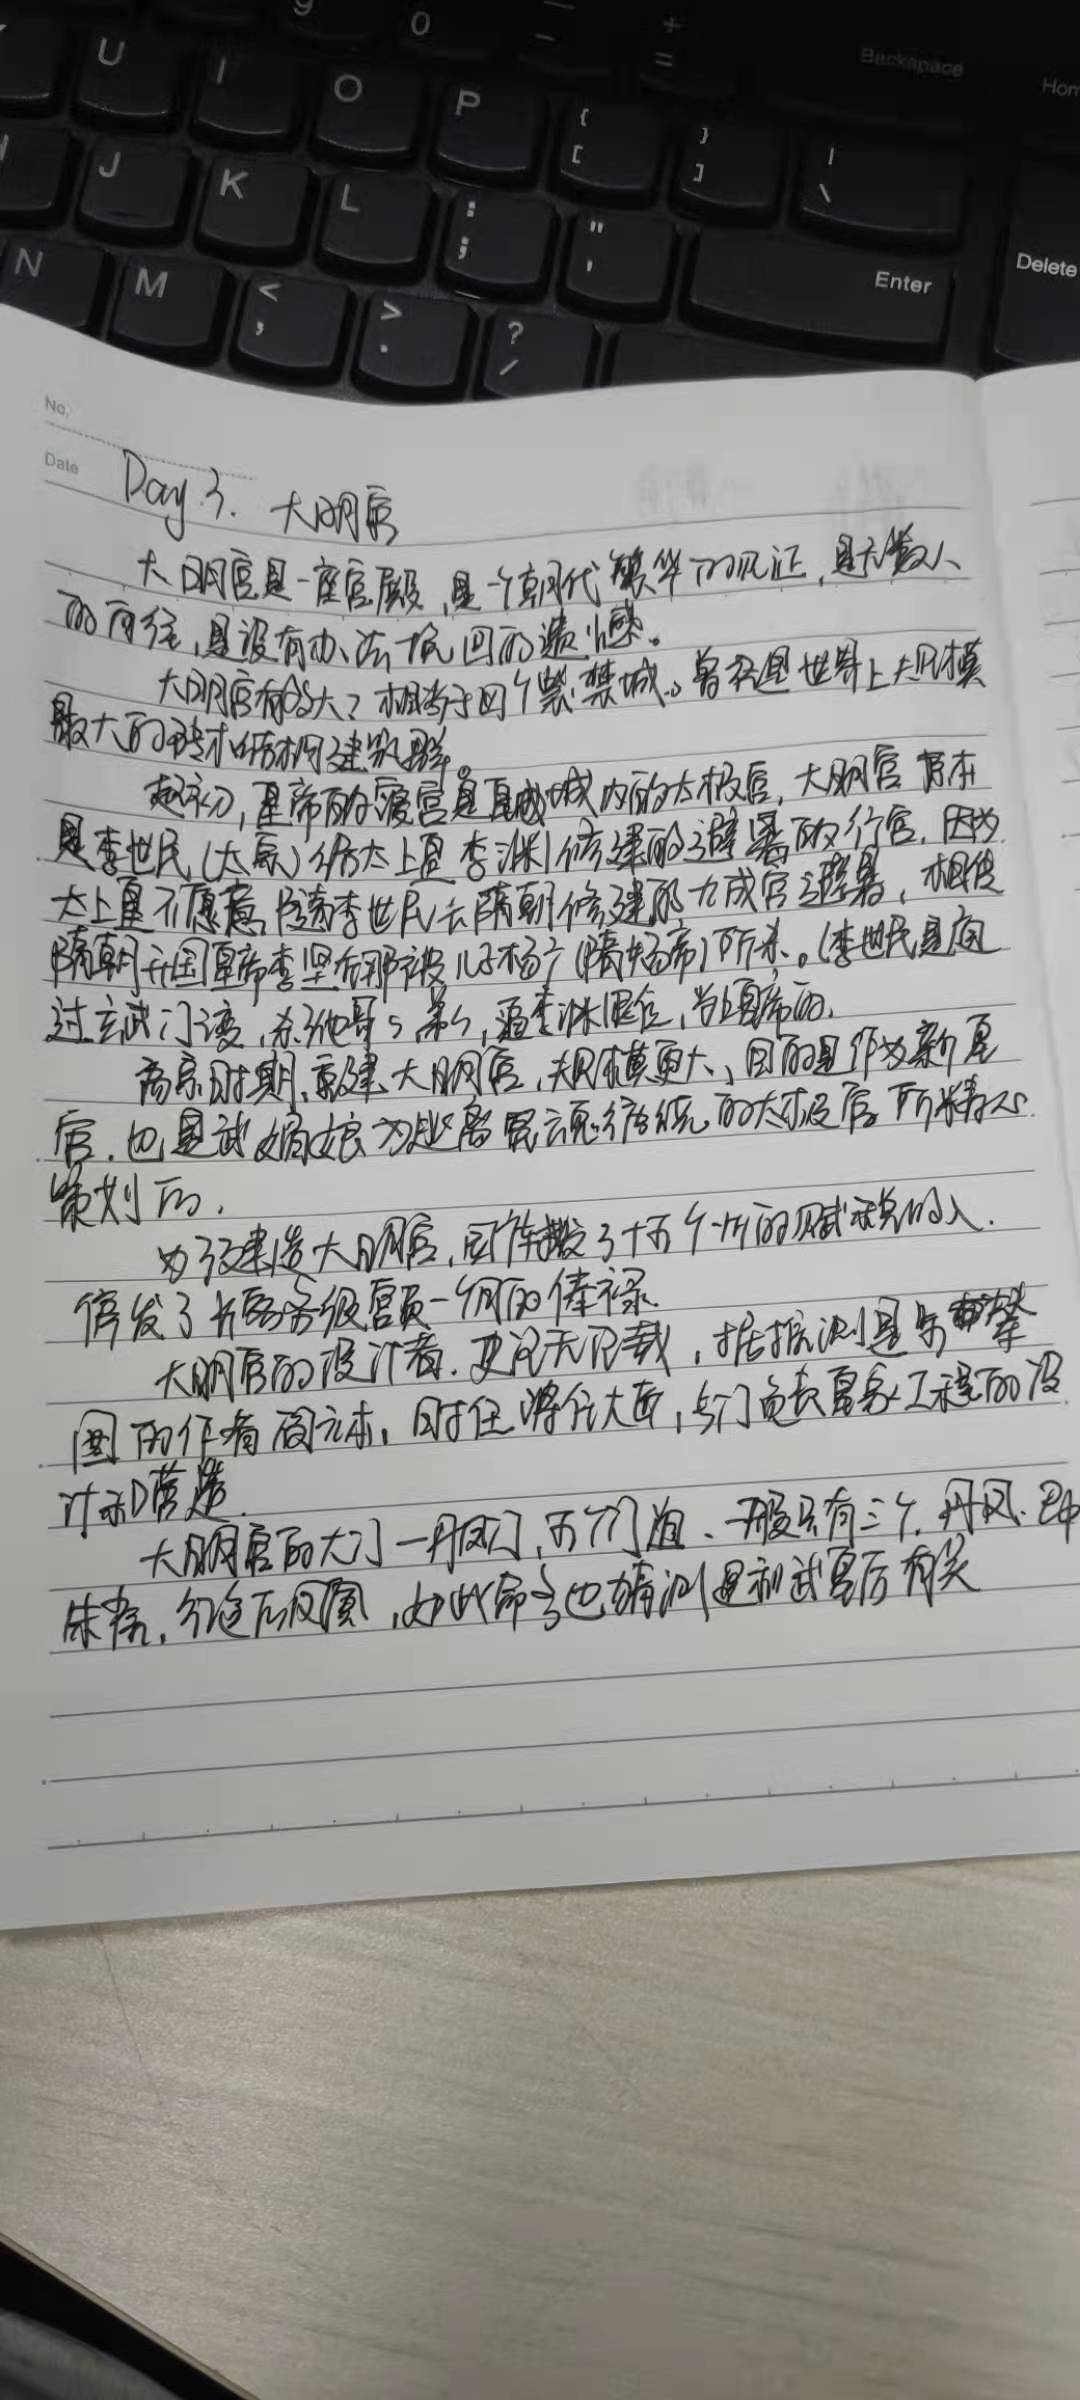 9 0 - + =
U I O P { [ } ] | \ Backspace Hom
J K L : ; " ' Enter Delete
N M < , > . ? /
No.
Date
Day 3. 大明宫
大明宫是一座宫殿,是一个朝代繁华的见证,是无数人
的向往,是没有办法挽回的遗憾。
大明宫有多大?相当于四个紫禁城。曾经是世界上规模
最大的砖木结构建筑群。
起初,皇帝的寝宫是皇城内的太极宫,大明宫原本
是李世民(太宗)给太上皇李渊修建的避暑的行宫,因为
太上皇不愿意随李世民去隋朝修建的九成宫避暑,相传
隋朝开国皇帝李坚在那被儿子杨广(隋炀帝)所杀。(李世民是通
过玄武门变,杀他哥、弟、,逼李渊退位,当皇帝的.
高宗时期,重建大明宫,规模更大,目的是作为新皇
宫.也是武媚娘为逃离冤魂缠绕的太极宫所精心
策划的.
为了建造大明宫,国库搬了十五个州的赋税收入.
停发了长安各级官员一个月的俸禄.
大明宫的设计者,史记无记载,据推测是步辇
图的作者阎立本,时任将作大匠,专门负责皇家工程的设
计和营造.
大明宫的大门—丹凤门,五个门道、一般只有三个.丹凤.
朱雀,如此命名也猜测是和武皇后有关